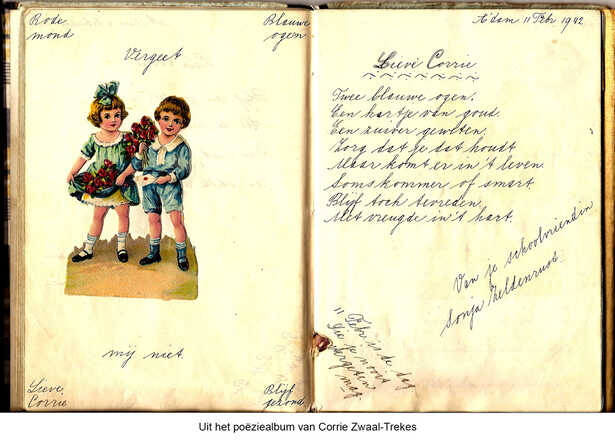 Rode
mond
Blauwe
ogen
Vergeet
mij niet
Lieve
Corrie
Blijf
gezond
A'dam 11 Febr 1942
Lieve Corrie
Twee blauwe ogen.
Een hartje van goud.
Een zuiver geweten.
Zorg dat je dat houdt
Maar komt er in 't leven.
Soms kommer of smart.
Blijf toch tevreden.
Met vreugde in 't hart.
Van je schoolvriendin
Sonja Zeldenrust
11 Febr is de dag
Die je nooit
vergeten
mag
Uit het poëziealbum van Corrie Zwaal-Trekes